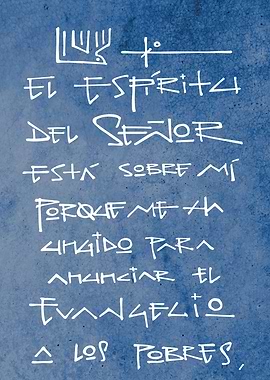 EL ESPÍRITU
DEL SEÑOR
ESTÁ SOBRE MÍ
PORQUE ME HA
UNGIDO PARA
ANUNCIAR EL
EVANGELIO
A LOS POBRES,